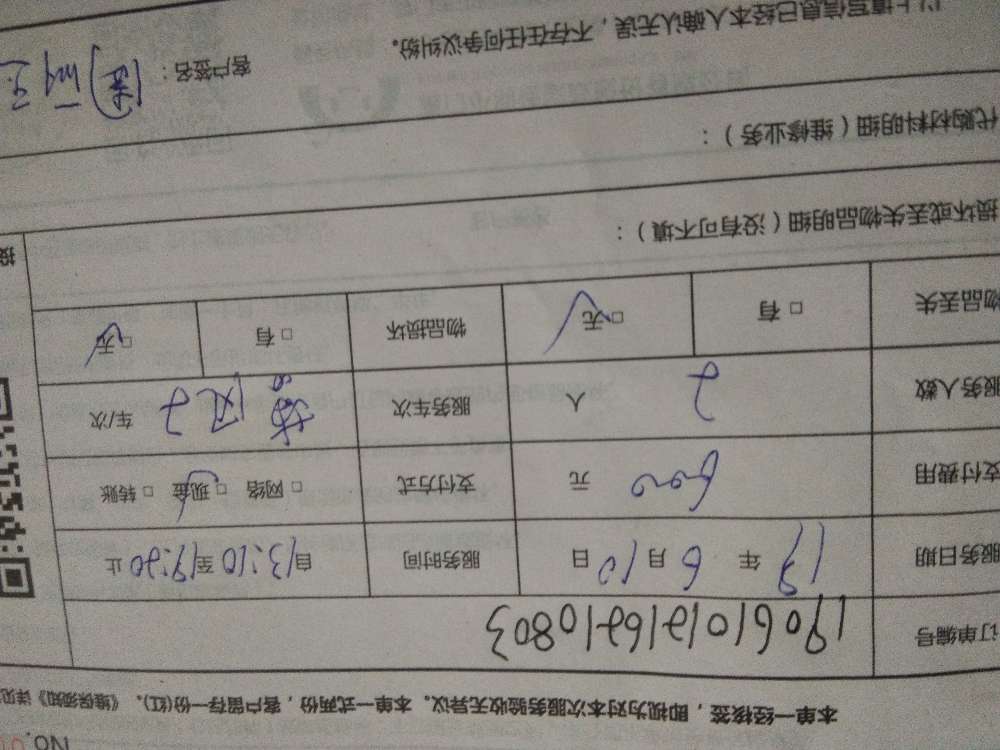 No.
本单一经接签，即视为对本次服务验收无异议。本单一式两份，客户留存一份(红)。《维保须知》详见
订单编号
服务日期 19年6月10日 服务时间 自13:10至19:20止
支付费用 600 元 支付方式 □网络 □现金 □转账
服务人数 2 人 服务车次 2 车/次
物品丢失 □有 □无 物品损坏 □有 □无
损坏或丢失物品明细（没有可不填）：
代购材料明细（维修业务）：
以上填写信息已经本人确认无误，不存在任何争议纠纷。 客户签名：